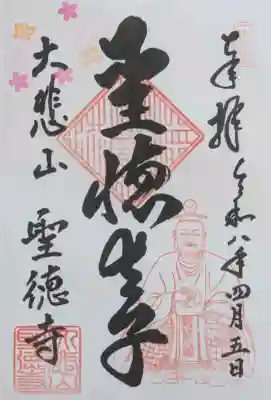 奉拝
令和八年四月五日
聖徳太子
大悲山
聖徳寺